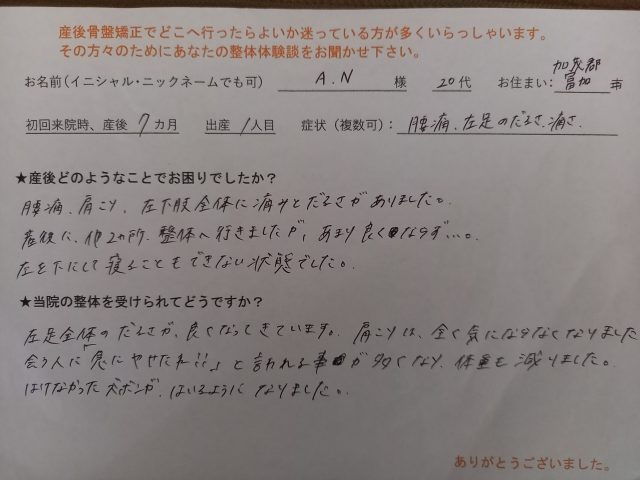 産後骨盤矯正でどこへ行ったらよいか迷っている方が多くいらっしゃいます。
その方々のためにあなたの整体体験談をお聞かせ下さい。
お名前(イニシャル・ニックネームでも可) A.N 様 20代 お住まい: 加茂郡富加 市
初回来院時、産後 7 カ月 出産 1 人目 症状(複数可): 腰痛、左足のだるさ、痛さ
★産後どのようなことでお困りでしたか?
腰痛、肩こり、左下肢全体に痛みとだるさがありました。
産後に、他2カ所、整体へ行きましたが、あまり良くならず…。
左を下にして寝ることもできない状態でした。
★当院の整体を受けられてどうですか?
左足全体のだるさが、良くなってきています。肩こりは、全く気にならなくなりました
会う人に「急にやせたね!!」と言われる事が多くなり、体重も減りました。
はけなかったズボンが、はいるようになりました。
ありがとうございました。